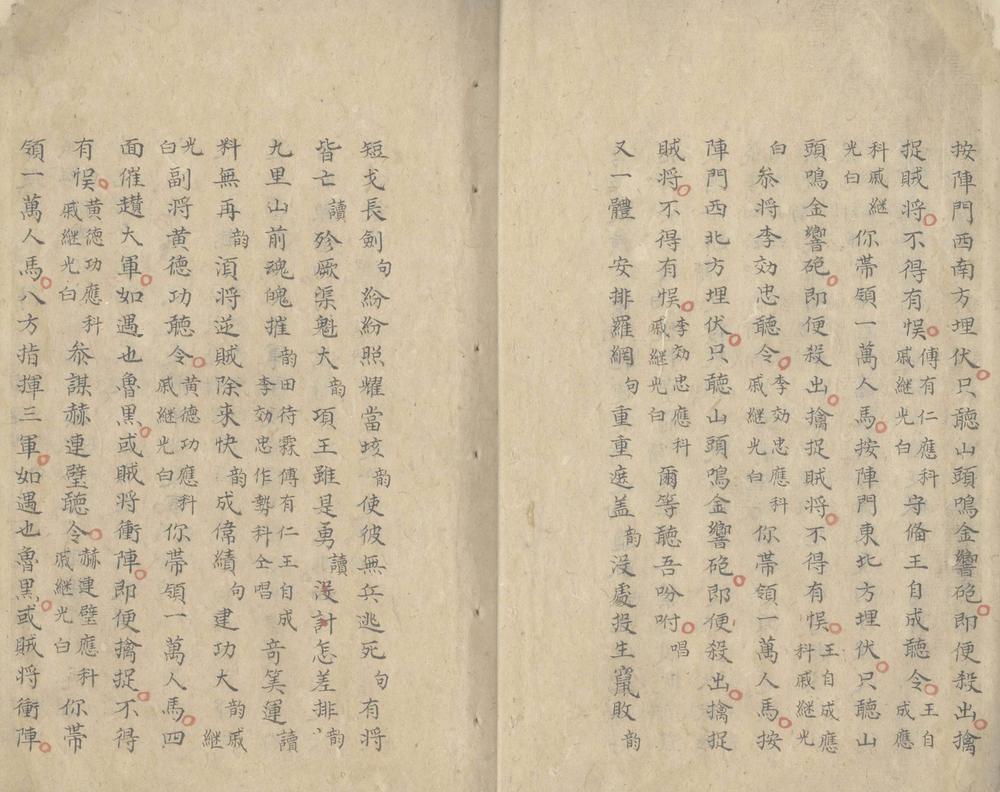 按陣門西南方埋伏只聽山頭鳴金響砲即便殺出擒
捉賊將不得有悞傅有仁應科戚繼光白守俻王自成聽令王自成應
科戚繼光白你帶領一萬人馬按陣門東北方埋伏只聽山
頭鳴金響砲即便殺出擒捉賊將不得有悞王自成應科戚繼光
白叅將李効忠聽令李効忠應科戚繼光白你帶領一萬人馬按
陣門西北方埋伏只聽山頭鳴金響砲即便殺出擒捉
賊將不得有悞李効忠應科戚繼光白爾等聽吾吩咐唱
又一體安排羅網句重重遮盖韵没處投生竄敗韵
短戈長劍句紛紛照耀當垓韵使彼無兵逃死句有將
皆亡讀殄厥渠魁大韵項王雖是勇讀没計怎差排韵
九里山前魂魄摧韵田待霖傅有仁王自成李効忠作勢科仝唱竒筭運讀
料無再韵湏將逆賊除来快韵成偉績句建功大韵戚繼
光白副將黄德功聽令黄德功應科戚繼光白你帶領一萬人馬四
面催趲大軍如遇也魯黑或賊將衝陣即便擒捉不得
有悞黄德功應科戚繼光白叅謀赫連璧聽令赫連璧應科戚繼光白你帶
領一萬人馬八方指揮三軍如遇也魯黑或賊將衝陣